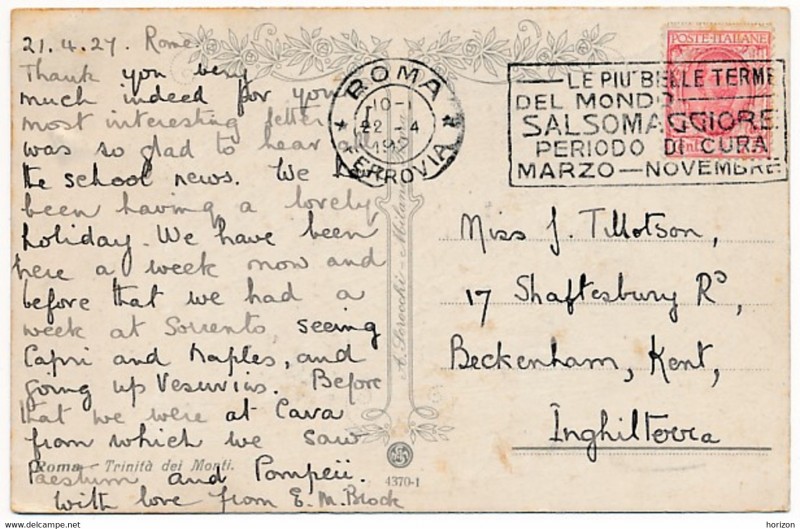 21.4.27. Rome
Thank you very
much indeed for your
most interesting letter
was so glad to hear all
the school news. We
been having a lovely
holiday. We have been
here a week now and
before that we had a
week at Sorrento, seeing
Capri and Naples, and
going up Vesuvius. Before
that we were at Cava
from which we saw
Paestum and Pompeii.
With love from E. M. Brock
Roma - Trinità dei Monti.
4370-1
A. Milano
ROMA
10-
22 4
192
FERROVIA
POSTE ITALIANE
LE PIU BELLE TERME
DEL MONDO
SALSOMAGGIORE
PERIODO DI CURA
MARZO — NOVEMBRE
Miss J. Tillotson,
17 Shaftesbury Rd,
Beckenham, Kent,
Inghilterra
www.delcampe.net
horizon